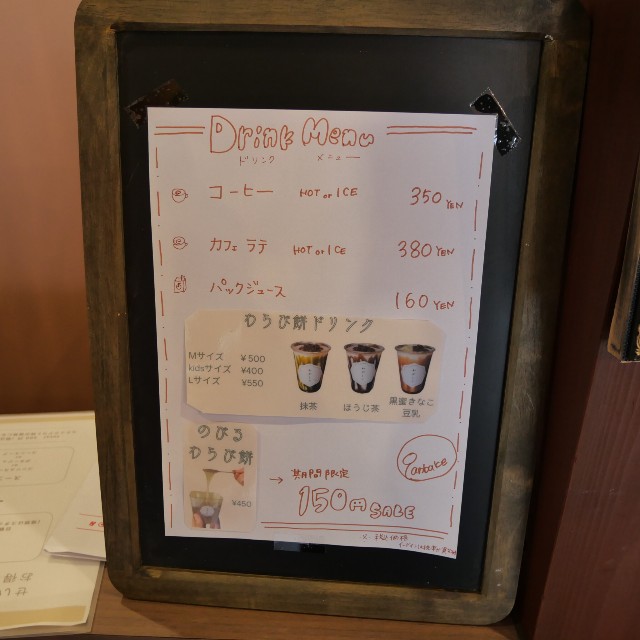 Drink Menu
ドリンク メニュー
コーヒー HOT or ICE 350 YEN
カフェラテ HOT or ICE 380 YEN
パックジュース 160 YEN
わらび餅ドリンク
Mサイズ ¥500
kidsサイズ ¥400
Lサイズ ¥550
抹茶 ほうじ茶 黒蜜きなこ
豆乳
のびる
わらび餅
¥450
→ 期間限定
150円 SALE
税込価格